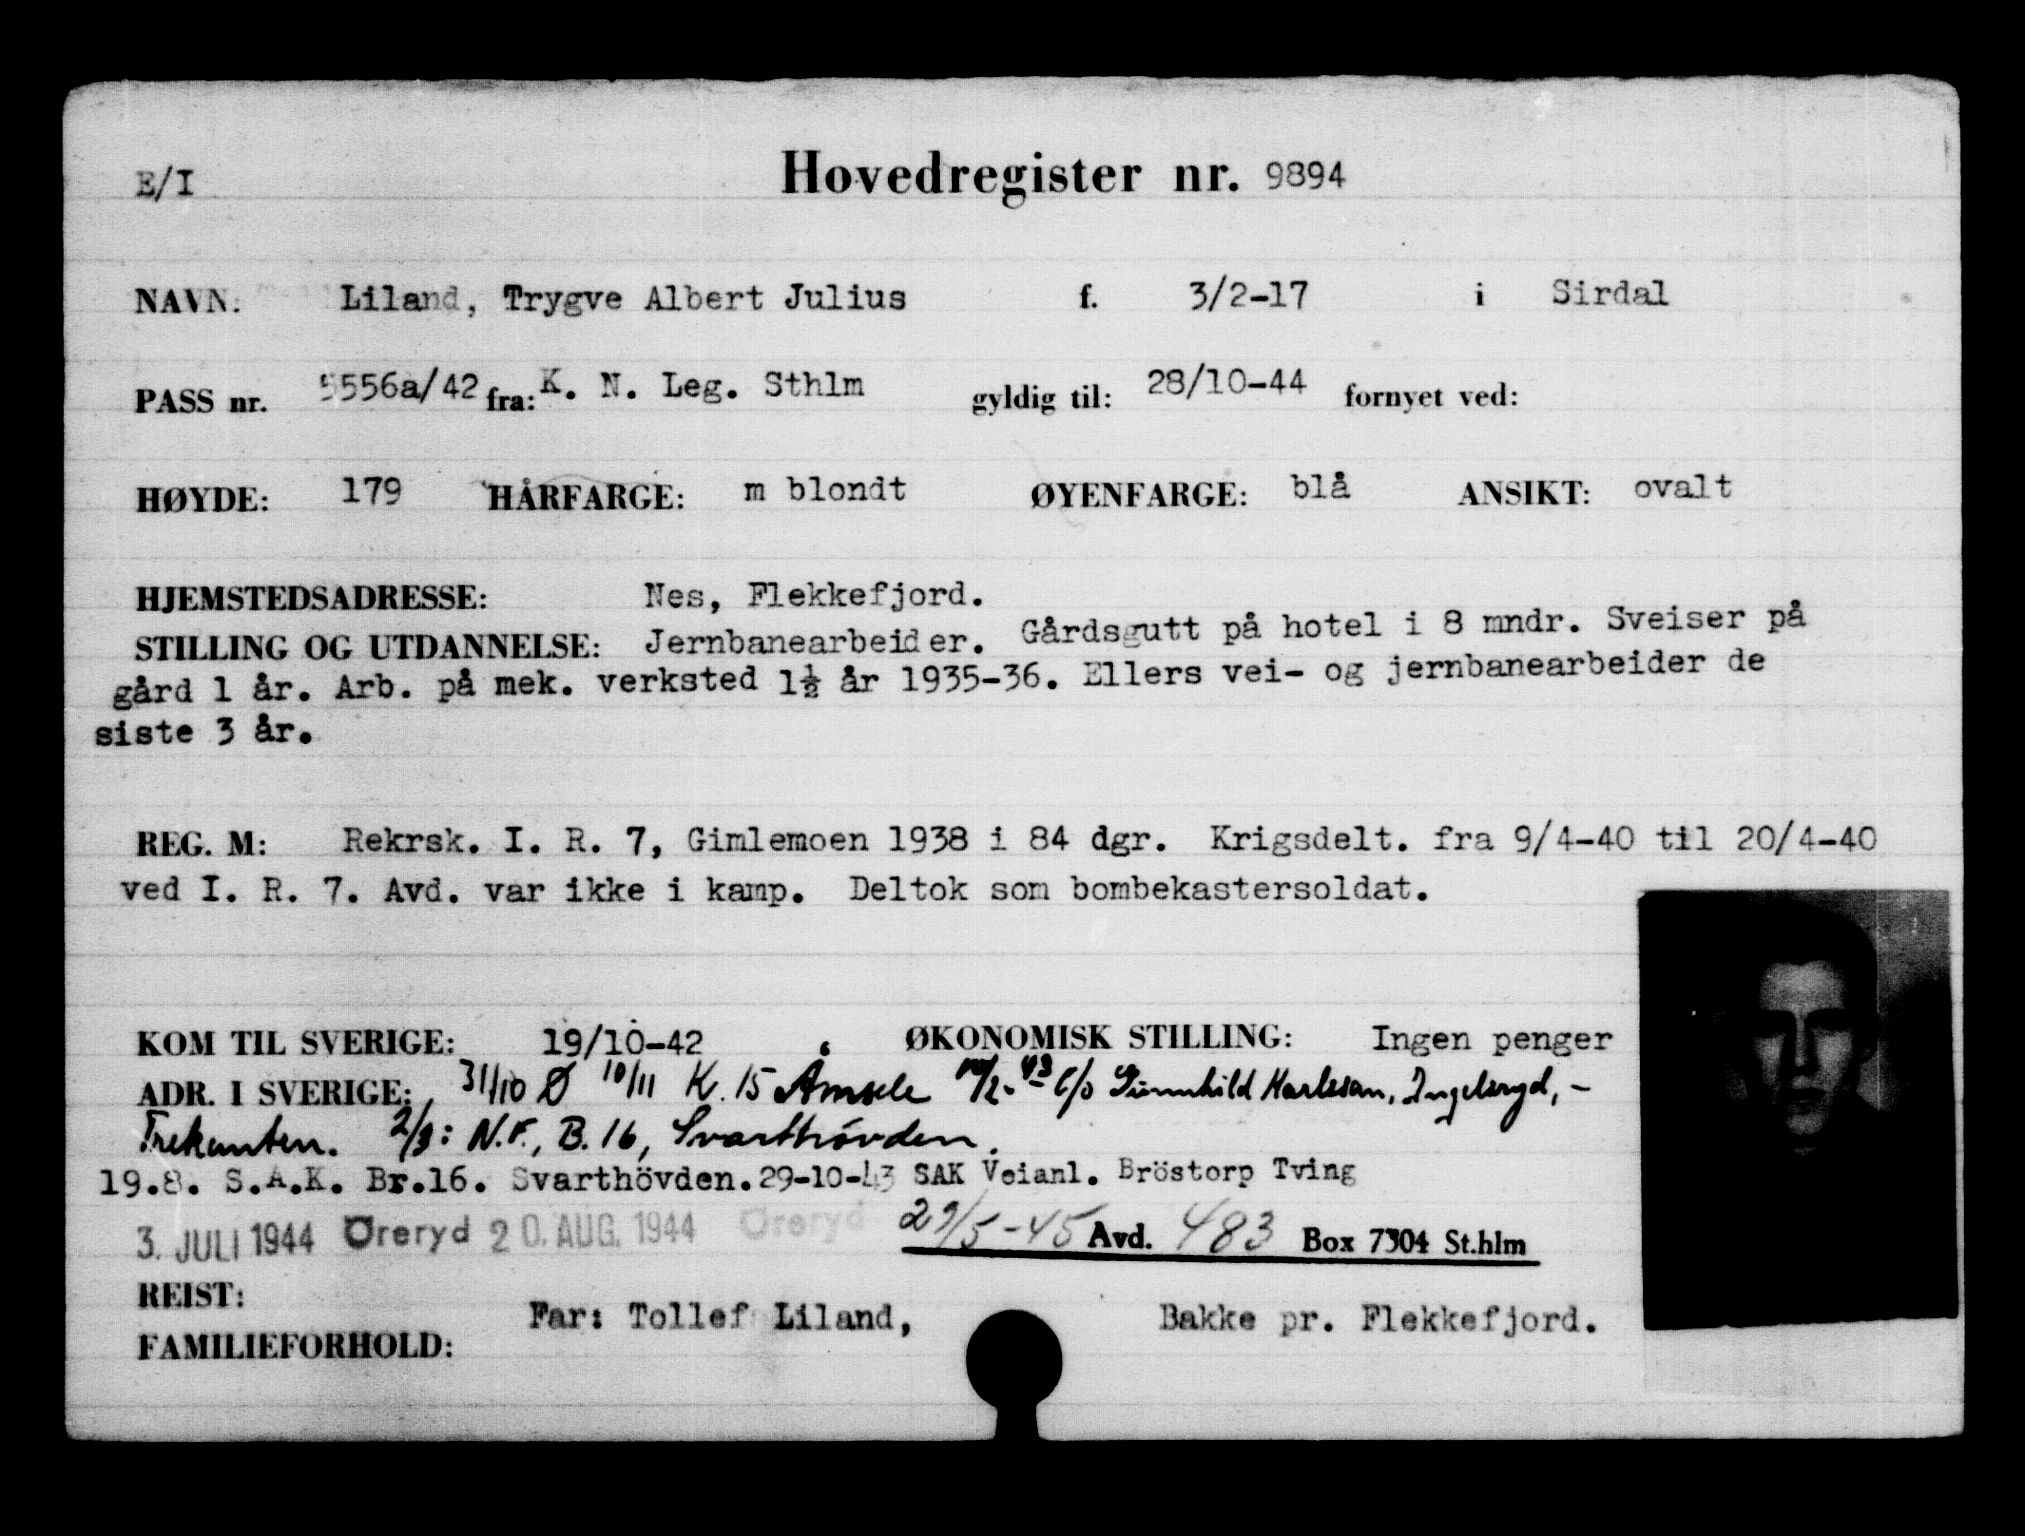 E/I Hovedregister nr. 9894
NAVN: Liland, Trygve Albert Julius f. 3/2-17 i Sirdal
PASS nr. 5556a/42 fra: K. N. Leg. Sthlm gyldig til: 28/10-44 fornyet ved:
HØYDE: 179 HÅRFARGE: m blondt ØYENFARGE: blå ANSIKT: ovalt
HJEMSTEDSADRESSE: Nes, Flekkefjord.
STILLING OG UTDANNELSE: Jernbanearbeider. Gårdsgutt på hotel i 8 mndr. Sveiser på
gård 1 år. Arb. på mek. verksted 1½ år 1935-36. Ellers vei- og jernbanearbeider de
siste 3 år.
REG. M: Rekrsk. I. R. 7, Gimlemoen 1938 i 84 dgr. Krigsdelt. fra 9/4-40 til 20/4-40
ved I. R. 7. Avd. var ikke i kamp. Deltok som bombekastersoldat.
KOM TIL SVERIGE: 19/10-42 ØKONOMISK STILLING: Ingen penger
ADR. I SVERIGE: 31/10 Ø 10/11 K. 15 Åmsele /2-43 c/o Gunnhild Karlsson, Ingelsryd, -
Trekanten. 2/3: N.F., B. 16, Svarthövden.
19.8. S.A.K. Br.16. Svarthövden. 29-10-43 SAK Veianl. Bröstorp Tving
3. JULI 1944 Öreryd 20. AUG. 1944 Öreryd 29/5-45 Avd. 483 Box 7304 St.hlm
REIST:
FAMILIEFORHOLD: Far: Tollef Liland, Bakke pr. Flekkefjord.